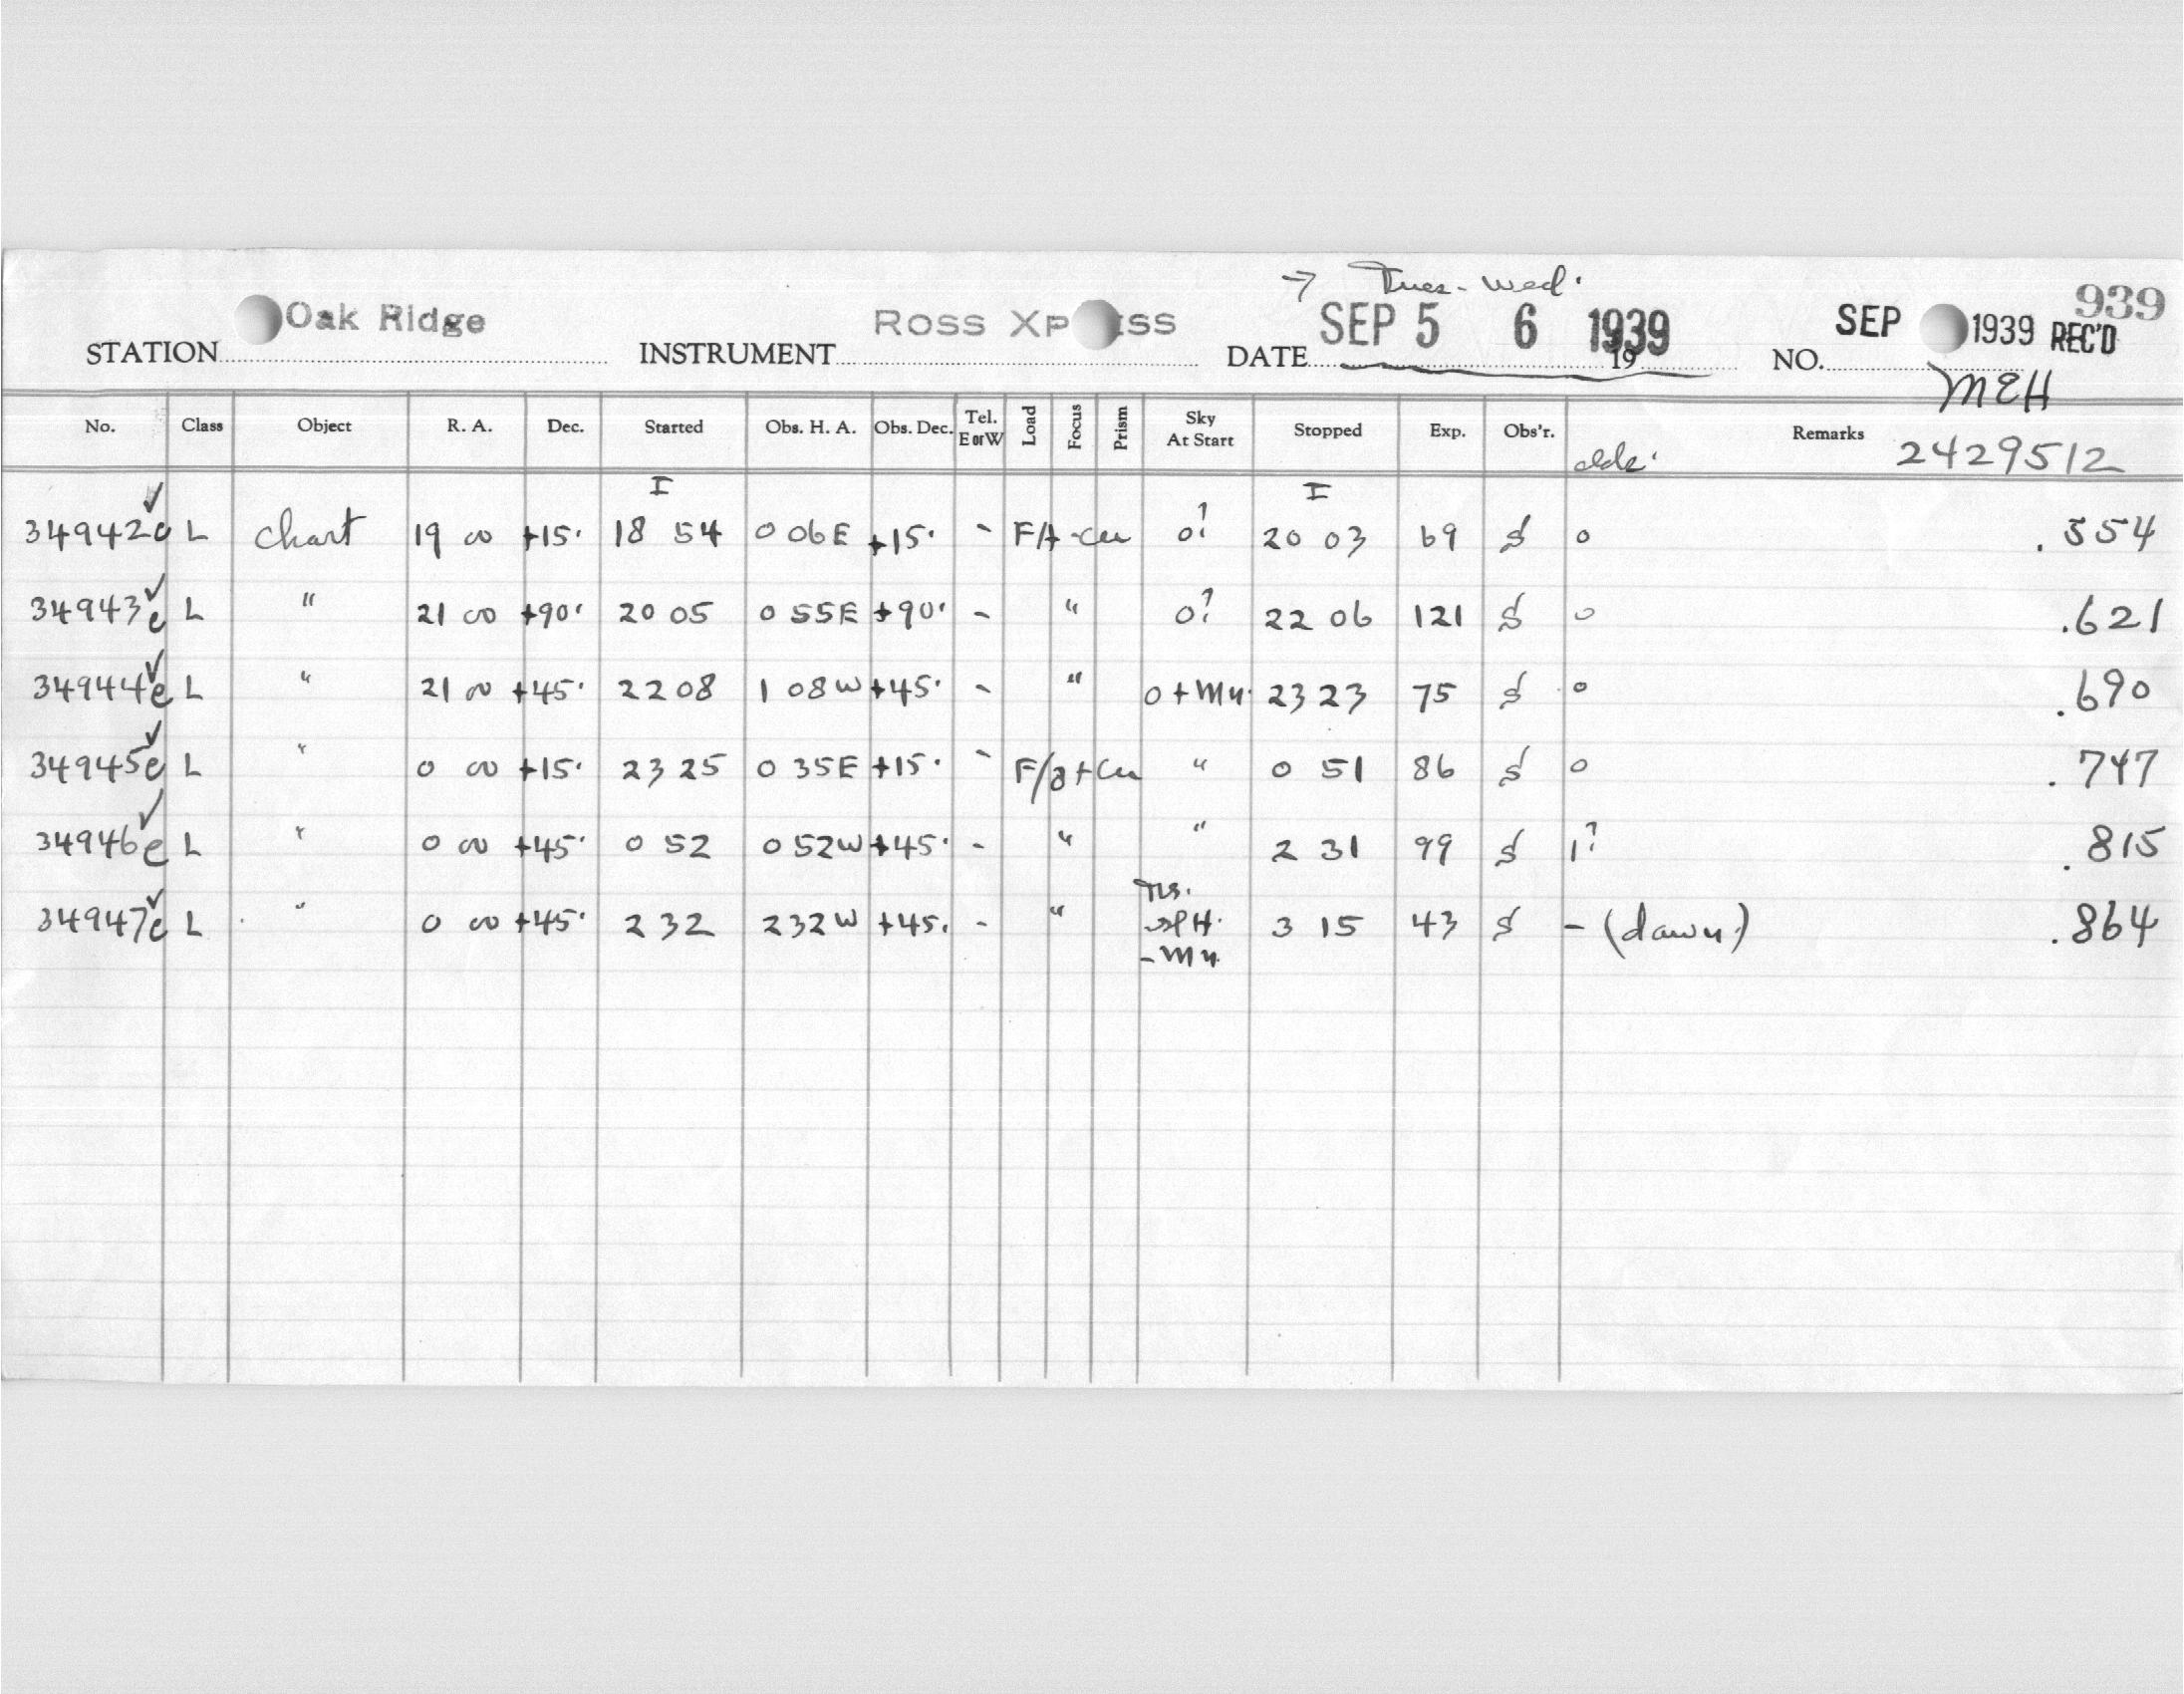 → Tues - Wed.
STATION Oak Ridge INSTRUMENT ROSS XP SS DATE SEP 5 6 1939 19 NO. SEP 1939 REC'D 939
MEH
No. Class Object R. A. Dec. Started Obs. H. A. Obs. Dec. Tel. E or W Load Focus Prism Sky At Start Stopped Exp. Obs'r. Remarks 2429512
I I
34942 L chart 19 00 +15° 18 54 0 06E +15° - F/ 0? 20 03 69 S 0 .554
34943e L " 21 00 +90° 20 05 0 55E +90° - " 0? 22 06 121 S 0 .621
34944e L " 21 00 +45° 22 08 1 08W +45° - " 0 + Mn. 23 23 75 S 0 .690
34945e L " 0 00 +15° 23 25 0 35E +15° - F/ " 0 51 86 S 0 .747
34946e L " 0 00 +45° 0 52 0 52W +45° - " " 2 31 99 S 1? .815
34947e L " 0 00 +45° 2 32 2 32W +45° - " - Mn. 3 15 43 S - (dawn) .864